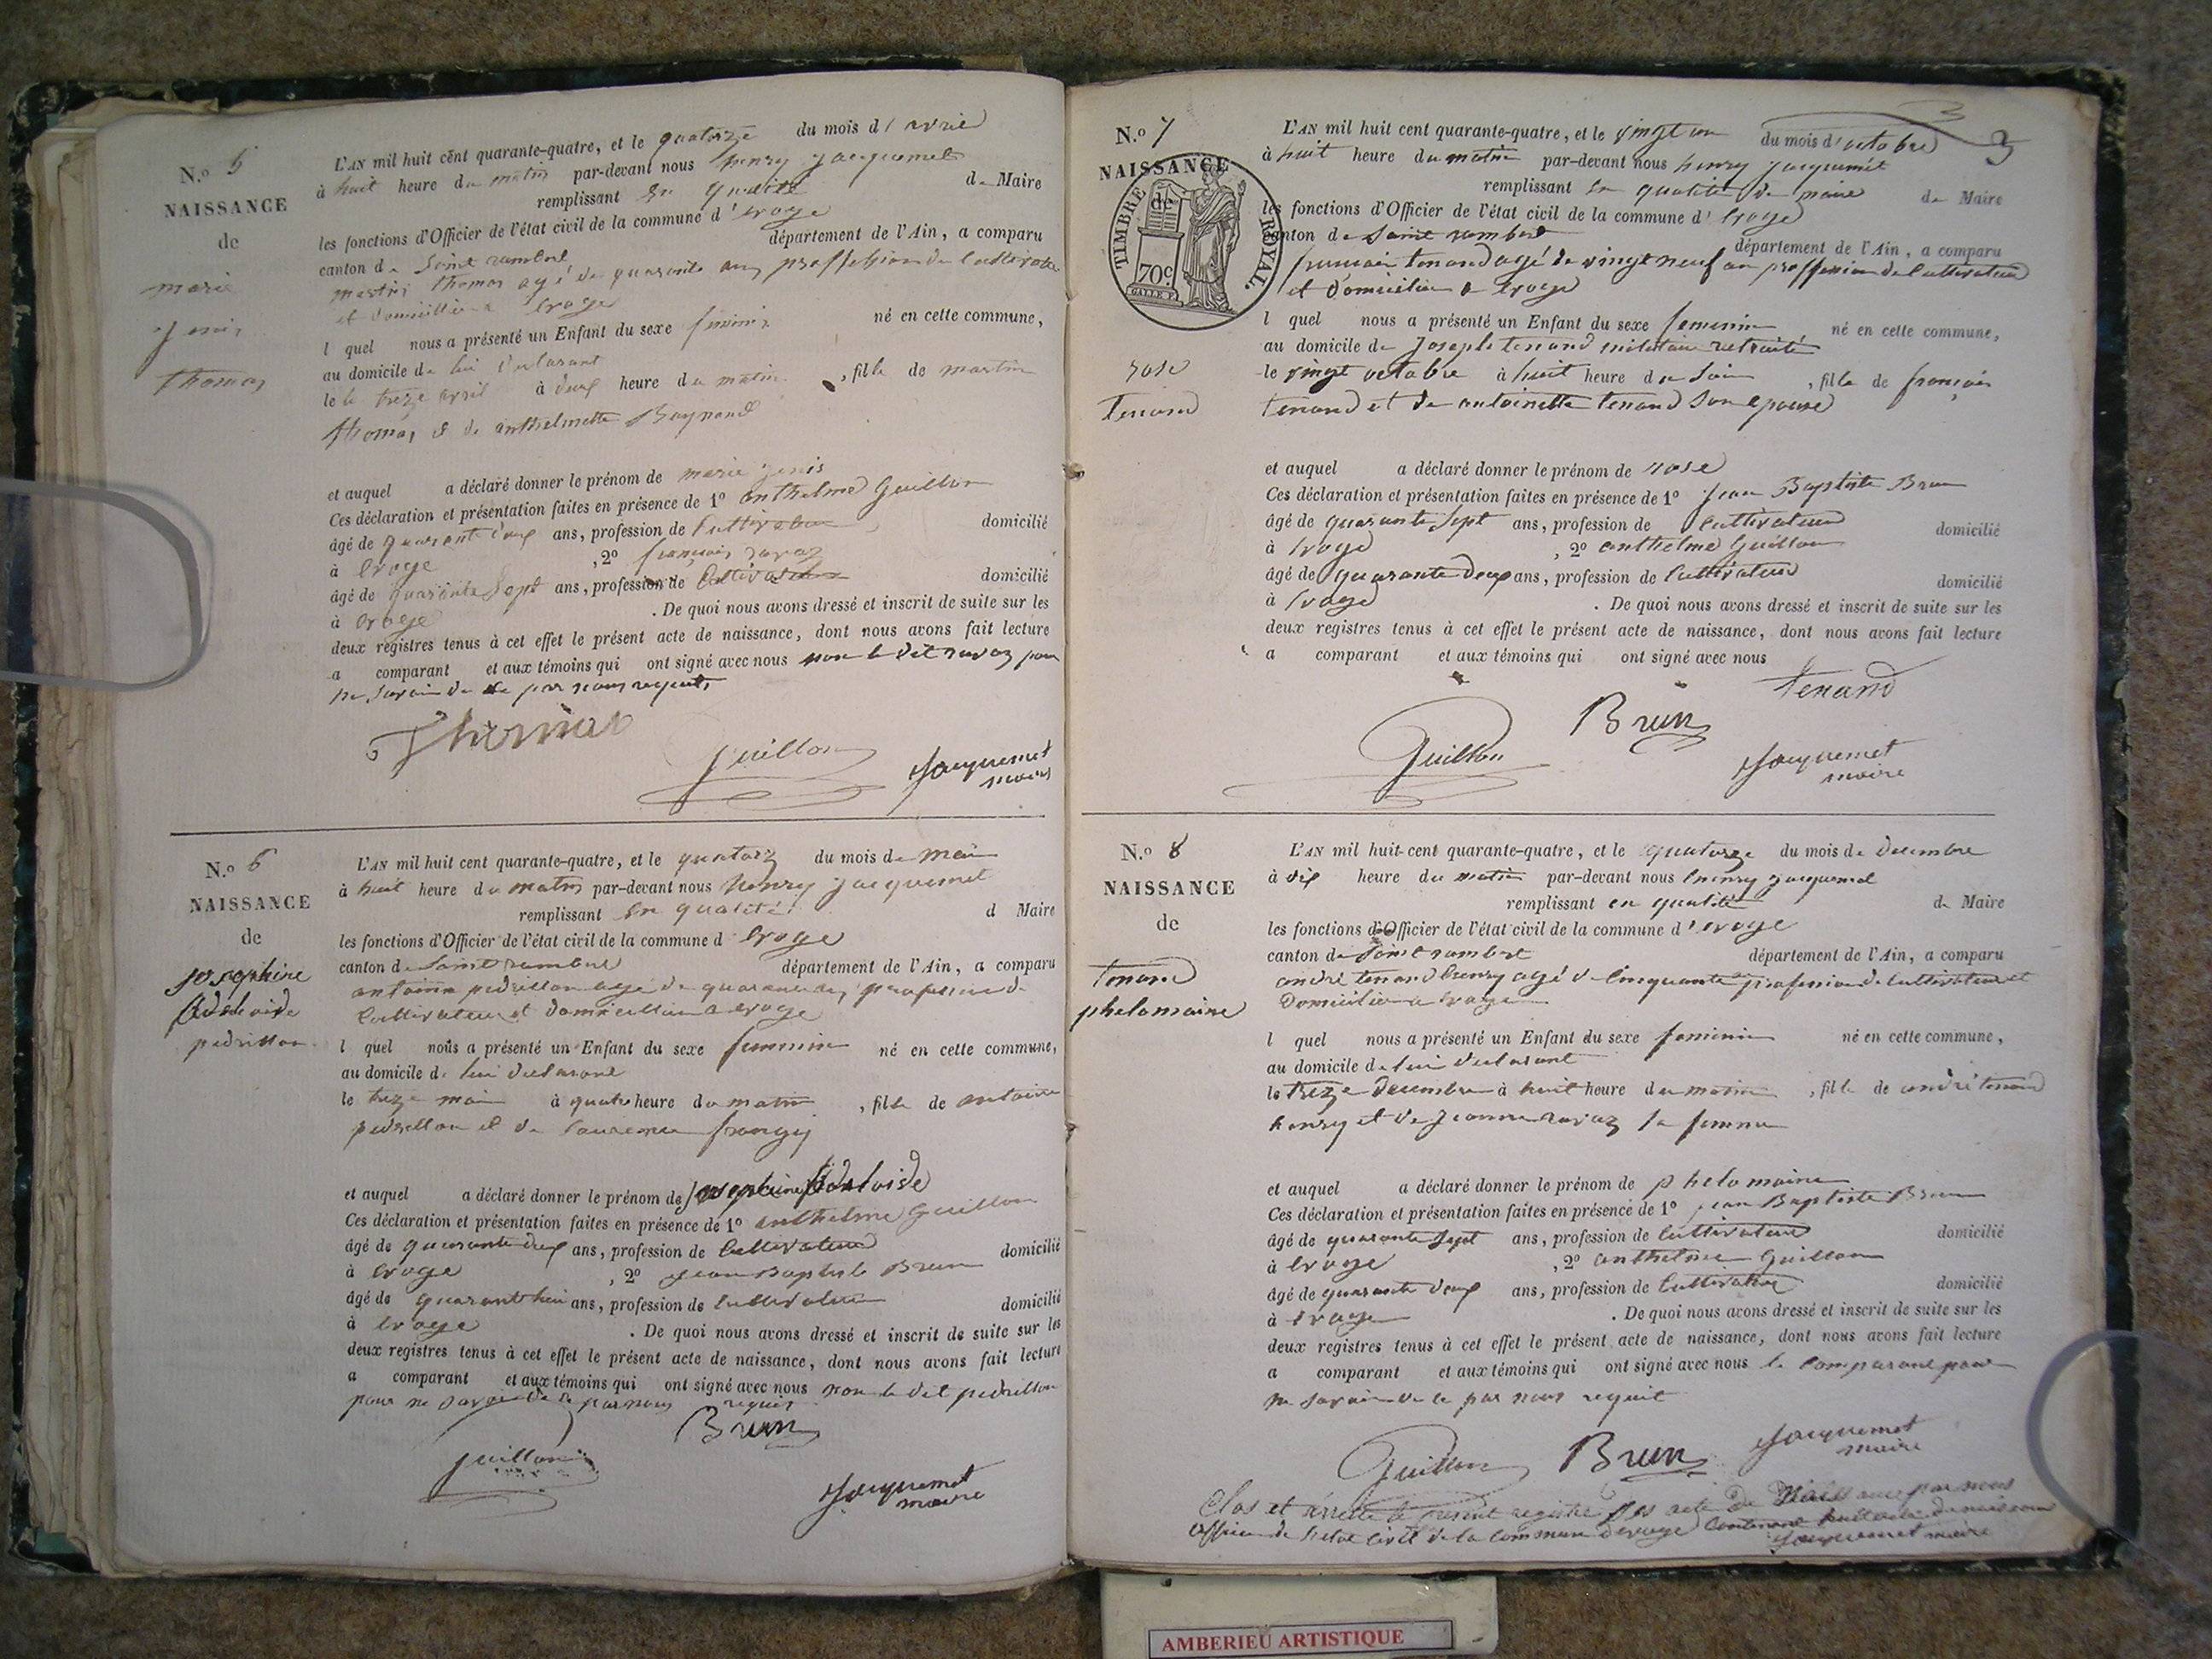 N.º 5
NAISSANCE
de
marie
jenis
thomas
L'AN mil huit cent quarante-quatre, et le quatorze du mois d'avril
à huit heure du matin par-devant nous henry jacquemet
remplissant en qualité de Maire
les fonctions d'Officier de l'état civil de la commune d'evoge
canton de Saint rambert département de l'Ain, a comparu
martin thomas agé de quarante ans proffession de Cultivateur
et domicillié a evoge
l quel nous a présenté un Enfant du sexe feminin né en cette commune,
au domicile de lui declarant
le le treze avril à deux heure du matin, fille de martin
thomas et de anthelmette Reynaud
et auquel a déclaré donner le prénom de marie jenis
Ces déclaration et présentation faites en présence de 1º anthelme Guillon
âgé de quarante deux ans, profession de Cultivateur domicilié
à evoge, 2º françois ravaz
âgé de quarante Sept ans, profession de Cultivateur domicilié
à evoge. De quoi nous avons dressé et inscrit de suite sur les
deux registres tenus à cet effet le présent acte de naissance, dont nous avons fait lecture
a comparant et aux témoins qui ont signé avec nous non le dit ravaz pour
ne savoir de ce par nous requis
Thomas
Guillon
Jacquemet
maire
N.º 6
NAISSANCE
de
josephine
Adelaide
pedrillon
L'AN mil huit cent quarante-quatre, et le quatorz du mois de mai
à huit heure du matin par-devant nous henry jacquemet
remplissant en qualité d Maire
les fonctions d'Officier de l'état civil de la commune d evoge
canton de Saint rambert département de l'Ain, a comparu
antoine pedrillon age de quarante ans profession de
Cultivateur et domicillié a evoge
l quel nous a présenté un Enfant du sexe feminin né en cette commune,
au domicile de lui declarant
le treze mai à quatre heure du matin, fille de antoine
pedrillon et de Laurence
et auquel a déclaré donner le prénom de josephine Adelaide
Ces déclaration et présentation faites en présence de 1º anthelme Guillon
âgé de quarante deux ans, profession de Cultivateur domicilié
à evoge, 2º Jean Baptiste Brun
âgé de ans, profession de Cultivateur domicilié
à evoge. De quoi nous avons dressé et inscrit de suite sur les
deux registres tenus à cet effet le présent acte de naissance, dont nous avons fait lecture
a comparant et aux témoins qui ont signé avec nous non le dit pedrillon
pour ne savoir de ce par nous requis
Brun
Guillon
Jacquemet
maire
3
3
N.º 7
NAISSANCE
de
TIMBRE ROYAL.
70c.
rose
Tenand
L'AN mil huit cent quarante-quatre, et le vingt un du mois d'octobre
à huit heure du matin par-devant nous henry jacquemet
remplissant en qualité de maire de Maire
les fonctions d'Officier de l'état civil de la commune d'evoge
canton de Saint rambert département de l'Ain, a comparu
francois tenand agé de vingt neuf an proffession de Cultivateur
et domicilié a evoge
l quel nous a présenté un Enfant du sexe feminin, né en cette commune,
au domicile de Joseph tenand militaire retraité
le vingt octobre à huit heure du Soir, fille de françois
tenand et de antoinette tenand Son epouse
et auquel a déclaré donner le prénom de rose
Ces déclaration et présentation faites en présence de 1º Jean Baptiste Brun
âgé de quarante Sept ans, profession de Cultivateur domicilié
à evoge, 2º anthelme Guillon
âgé de quarante deux ans, profession de Cultivateur domicilié
à evoge. De quoi nous avons dressé et inscrit de suite sur les
deux registres tenus à cet effet le présent acte de naissance, dont nous avons fait lecture
a comparant et aux témoins qui ont signé avec nous
Tenand
Brun
Guillon
Jacquemet
maire
N.º 8
NAISSANCE
de
Tenand
phelomaine
L'AN mil huit cent quarante-quatre, et le quatorze du mois de decembre
à dix heure du matin par-devant nous henry jacquemet
remplissant en qualité de Maire
les fonctions d'Officier de l'état civil de la commune d'evoge
canton de Saint rambert département de l'Ain, a comparu
andré tenand henry agé de Cinquante profession de Cultivateur et
Domicilié a evoge
l quel nous a présenté un Enfant du sexe feminin né en cette commune,
au domicile de lui declarant
le treze decembre à huit heure du matin, fille de andré tenand
henry et de jeanne ravaz Sa femme
et auquel a déclaré donner le prénom de phelomaine
Ces déclaration et présentation faites en présence de 1º jean Baptiste Brun
âgé de quarante Sept ans, profession de Cultivateur domicilié
à evoge, 2º anthelme Guillon
âgé de quarante deux ans, profession de Cultivateur domicilié
à evoge. De quoi nous avons dressé et inscrit de suite sur les
deux registres tenus à cet effet le présent acte de naissance, dont nous avons fait lecture
a comparant et aux témoins qui ont signé avec nous le Comparant pour
ne savoir de ce par nous requit
Guillon
Brun
Jacquemet
maire
Clos et arrêté le present registre des acte de Naissance par nous
officier de letat Civil de la Commune devoge Contenant huit acte de naissance
Jacquemet maire
AMBERIEU ARTISTIQUE